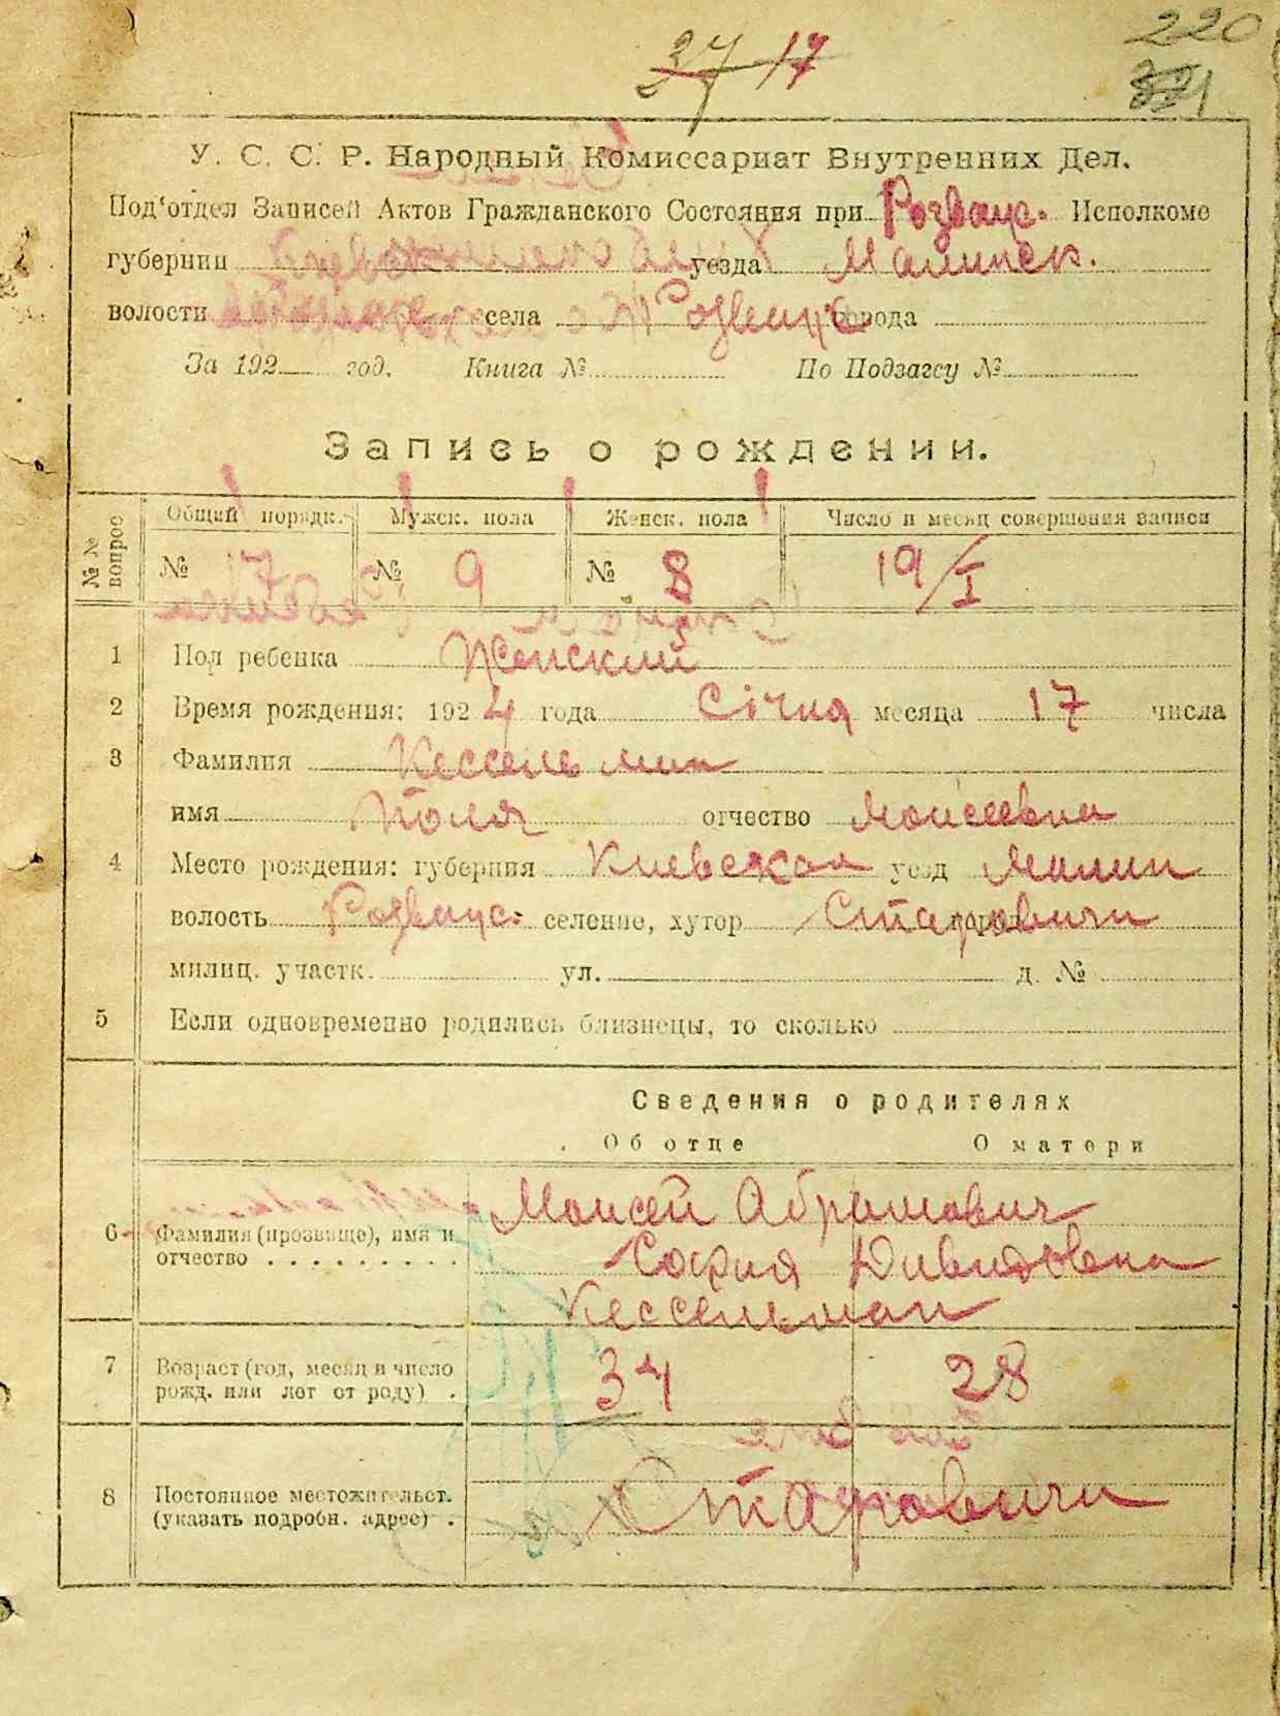 37 17
220
У. С. С. Р. Народный Комиссариат Внутренних Дел.
Под'отдел Записей Актов Гражданского Состояния при Розваж. Исполкоме
губернии уезда Малинск.
волости села Розваже города
За 192 год. Книга № По Подзагсу №
Запись о рождении.
№№ вопрос Общий порядк. Мужск. пола Женск. пола Число и месяц совершения записи
№ 17 № 9 № 8 19/I
1 Пол ребенка Женский
2 Время рождения: 1924 года Січня месяца 17 числа
3 Фамилия Кессельман
имя Поля отчество Моисеевна
4 Место рождения: губерния Киевская уезд Малин
волость Розваж. селение, хутор Старовичи
милиц. участк. ул. д. №
5 Если одновременно родились близнецы, то сколько
Сведения о родителях
Об отце О матери
Моисей Абрамович
6 Фамилия (прозвище), имя и
отчество . . . . . . . . . София Давидовна
Кессельман
7 Возраст (год, месяц и число
рожд. или лет от роду) . 34 28
8 Постоянное местожительст.
(указать подробн. адрес) . Старовичи